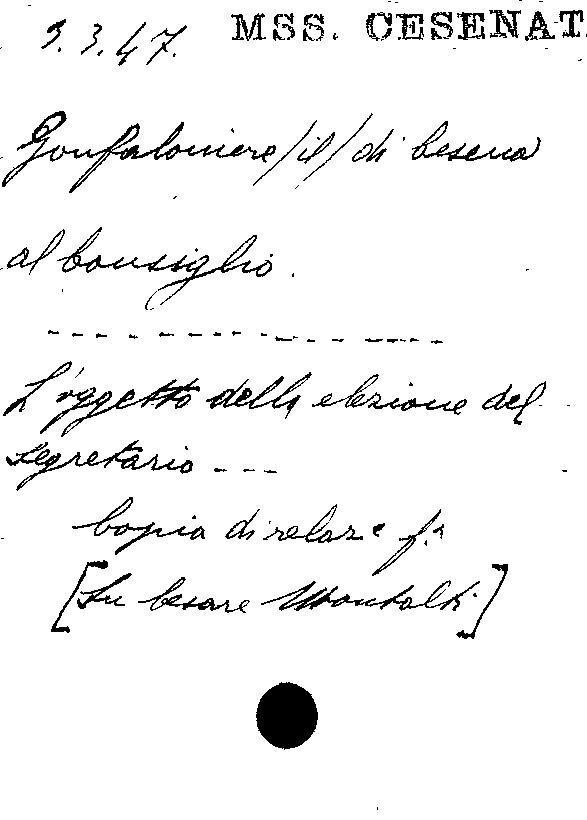 5.3.47. MSS. CESENAT.
Gonfaloniere /il/ di Cesena
al Consiglio.
L'oggetto della elezione del
Segretario ---
Copia di relaz.e f.a
[Su Cesare Montalti]